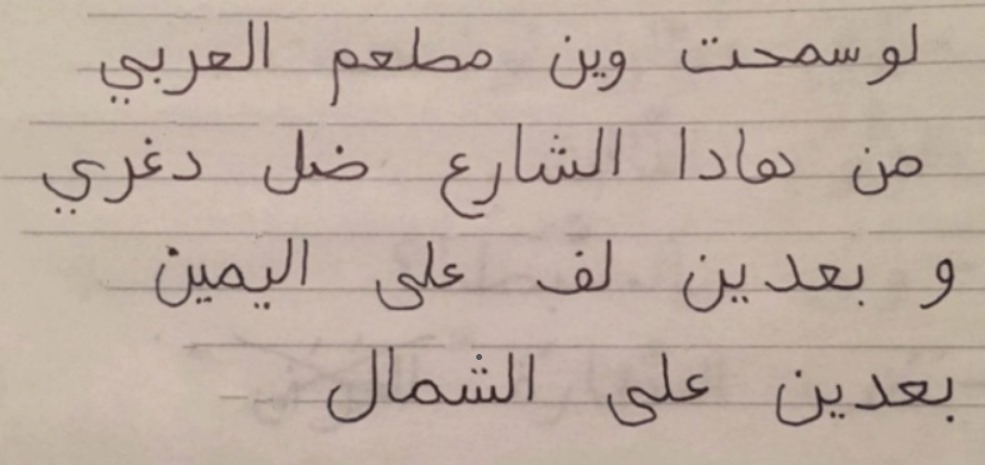 لو سمحت وين مطعم العربي
من هادا الشارع ضل دغري
و بعدين لف على اليمين
بعدين على الشمال